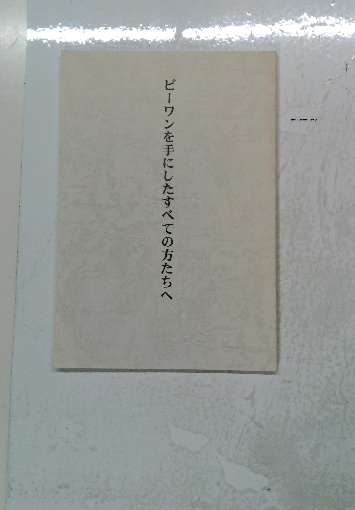 ビーワンを手にしたすべての方たちへ